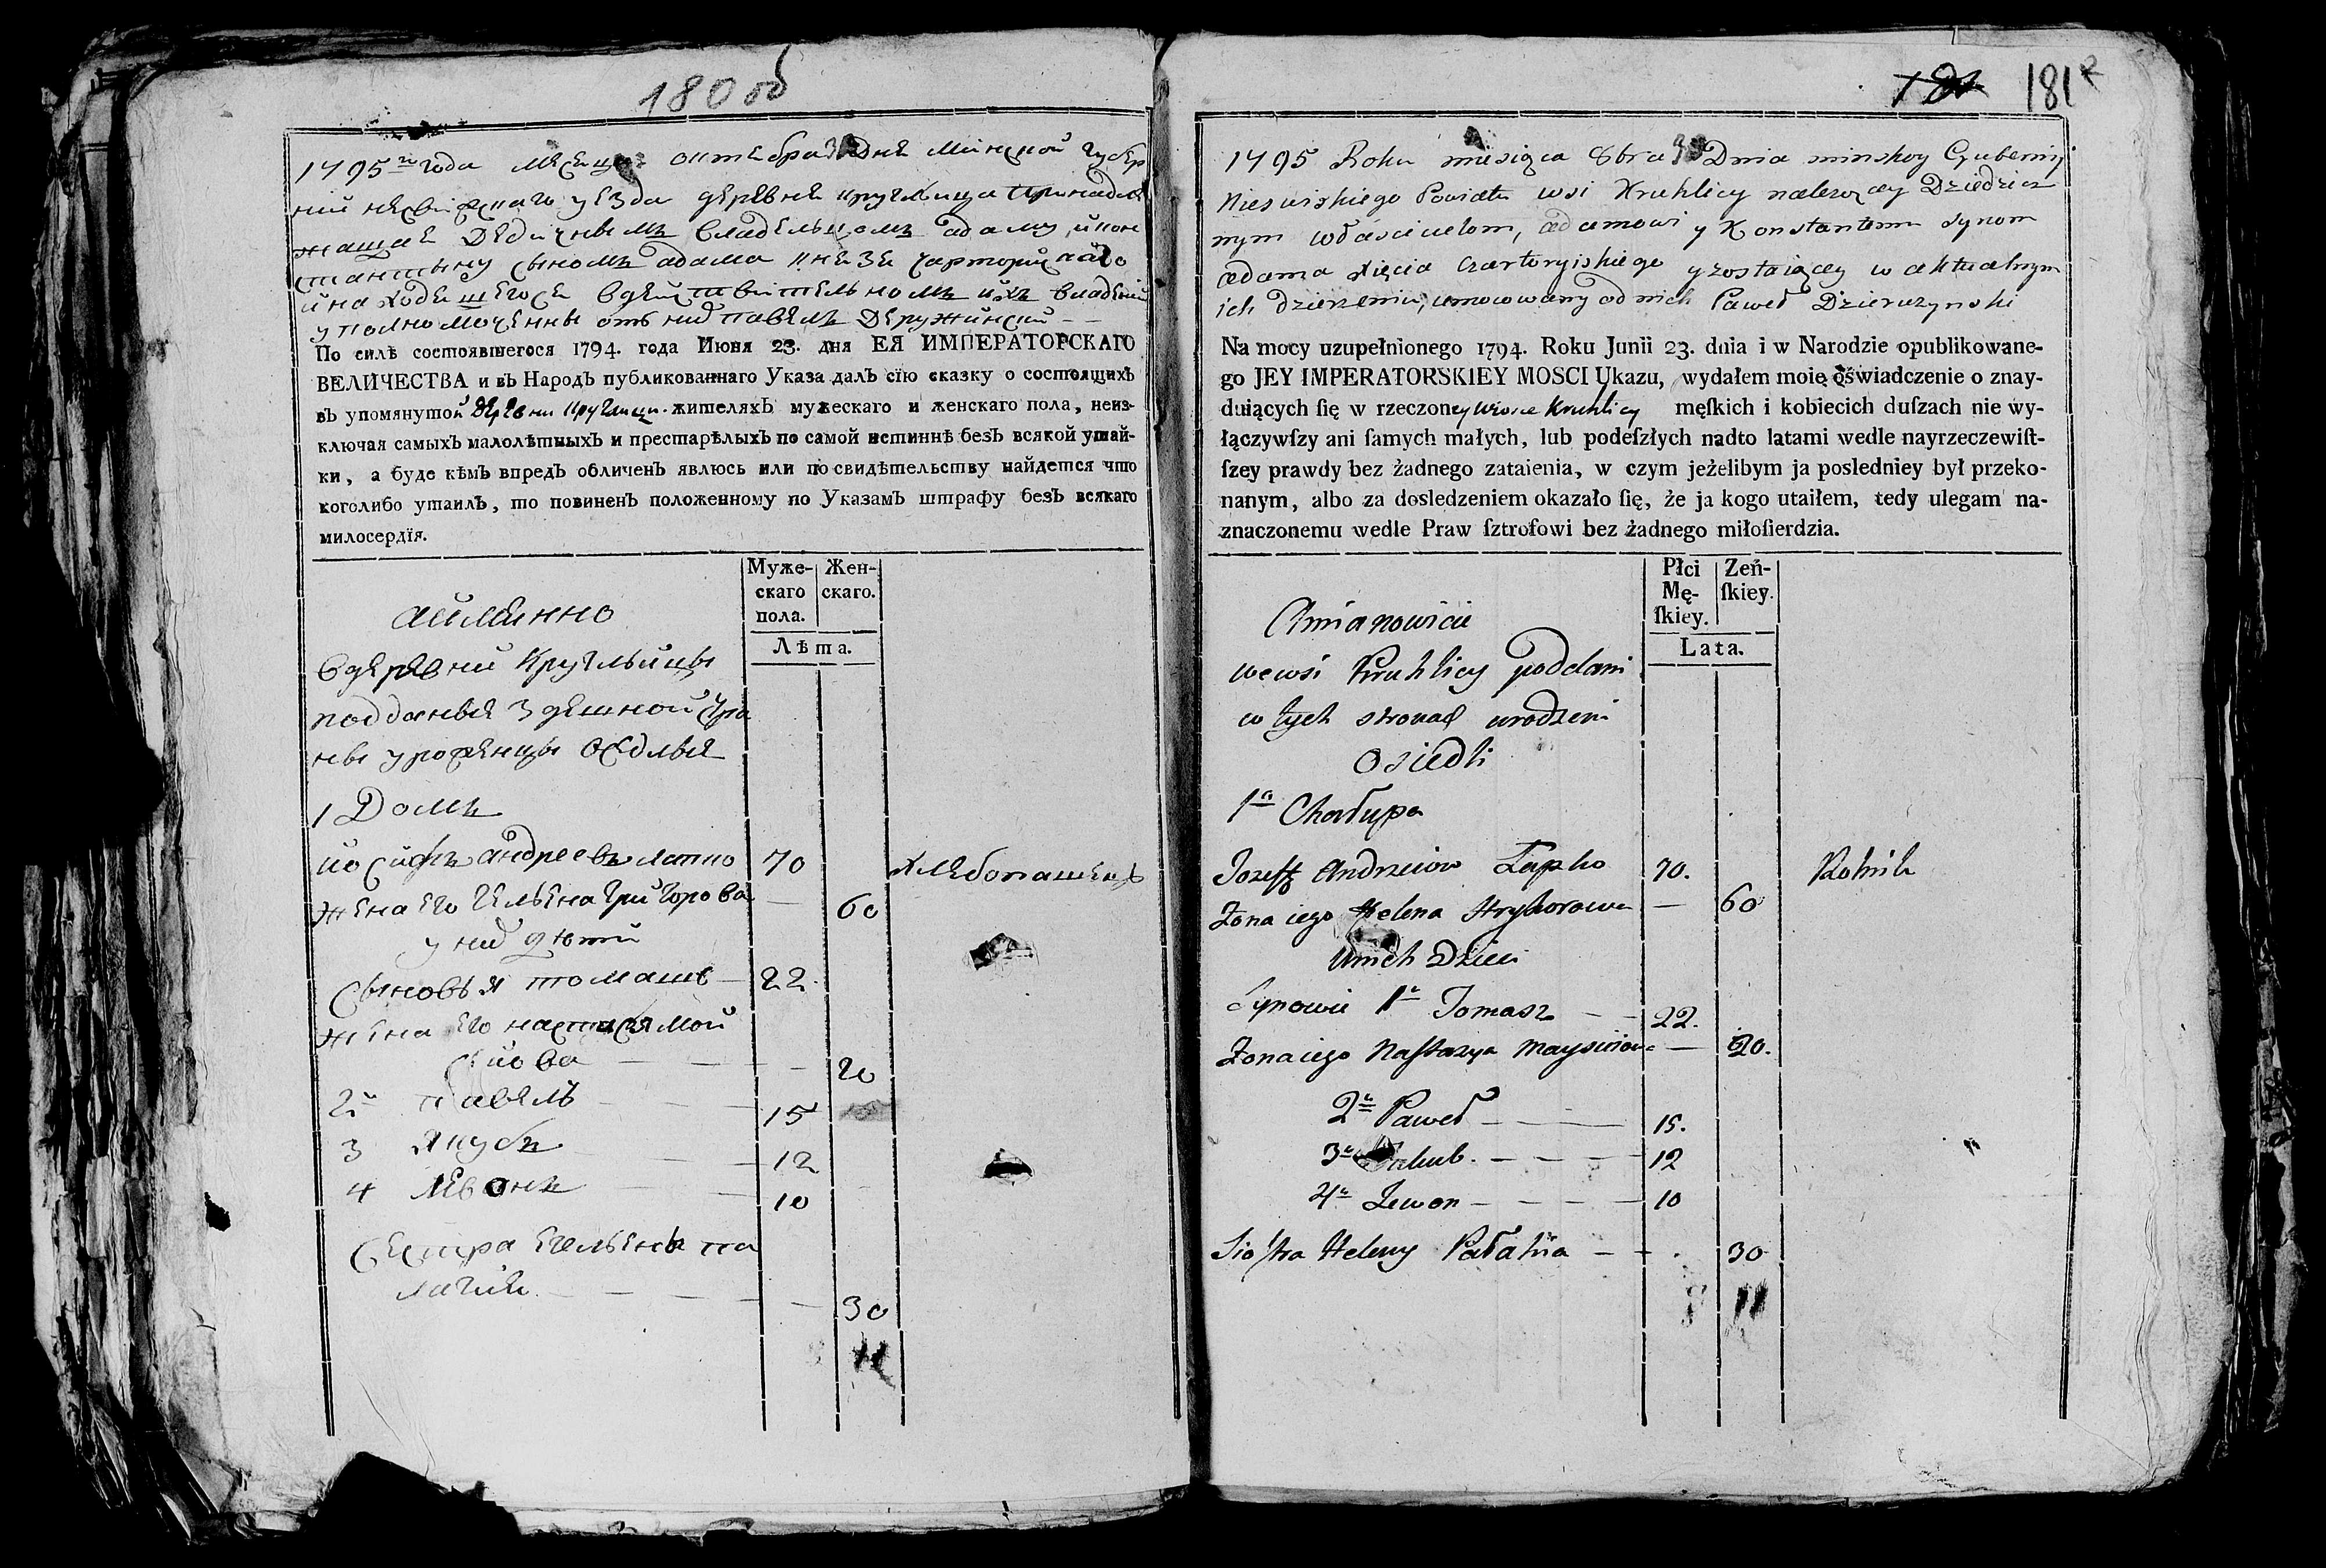 180 об
1795го года месеца октебра 30 дня Минской губер
ний несвіжскаго уезда деревня кругълица принадле
жащая Дедичнымъ владельцомъ адаму, и кон
стантыну сыномъ адама князя чарторискаго
и находещегося в действительномъ ихъ владении
уполномоченны отъ них павелъ Держинский
По силѣ состоявшегося 1794. года Июня 23. дня ЕЯ ИМПЕРАТОРСКАГО
ВЕЛИЧЕСТВА и въ Народъ публикованнаго Указа далъ сїю сказку о состоящихъ
въ упомянутой деревни круглици жителяхъ мужескаго и женскаго пола, неиз-
ключая самыхъ малолѣтныхъ и престарѣлыхъ по самой истиннѣ безъ всякой утай-
ки, а буде кѣмъ впредъ обличенъ явлюсь или по свидѣтельству найдется что
коголибо утаилъ, то повиненъ положенному по Указамъ штрафу безъ всякаго
милосердїя.
Муже- Жен-
скаго скаго.
пола.
Лѣта.
аименно
в деревни Кругльицы
подданыя здешной стра
ны уроженцы оседлыя
1 Домъ
иосифъ андреевъ лапко 70 хлебопашецъ
жена его гельена григорова — 60
у них дети
Сыновья томашъ — 22
жена его настася мой
сиова — 20
2й павелъ 15
3 Якубъ 12
4 Левонъ 10
Сестра гельены па
лагия — 30
181
1795 Roku miesiąca 8bra 30 Dnia minskoy Guberniy
Nieswizkiego Powiatu wsi Kruhlicy należącey Dziedzicz
nym Właścicielom, adamowi y Konstantemu synom
adama Xięcia Czartoryiskiego y zostaiącey w aktualnym
ich dzierzeniu, umocowany od nich Paweł Dzierużynski
Na mocy uzupełnionego 1794. Roku Junii 23. dnia i w Narodzie opublikowane-
go JEY IMPERATORSKIEY MOSCI Ukazu, wydałem moię oświadczenie o znay-
duiących ſię w rzeczoney Wiosce Kruhlicy męſkich i kobiecich duſzach nie wy-
łączywſzy ani ſamych małych, lub podeſzłych nadto latami wedle nayrzeczewiſt-
ſzey prawdy bez żadnego zataienia, w czym jeżelibym ja posledniey był przeko-
nanym, albo za dosledzeniem okazało ſię, że ja kogo utaiłem, tedy ulegam na-
znaczonemu wedle Praw ſztrofowi bez żadnego miłoſierdzia.
Płci Zeń-
Mę- ſkiey.
ſkiey.
Lata.
Amianowicie
we wsi Kruhlicy poddani
w tych stronach urodzeni
Osiedli
1a Chałupa
Jozeff Andrzeiow Łapko 70. Rolnik
Żona iego Helena Hryhorowa — 60
U nich Dzieci
Synowie 1y Tomasz — — 22.
Żona iego Nastazya Moysieiowa — 20.
2y Paweł — 15.
3y Jakub. — — — 12
4y Lewon — — — 10
Siostra Heleny Pałahia — 30